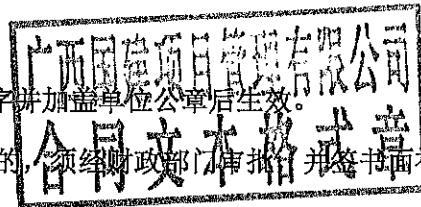 广西国建项目管理有限公司
字并加盖单位公章后生效。
合同文本格式章
的，须经财政部门审批，并签书面